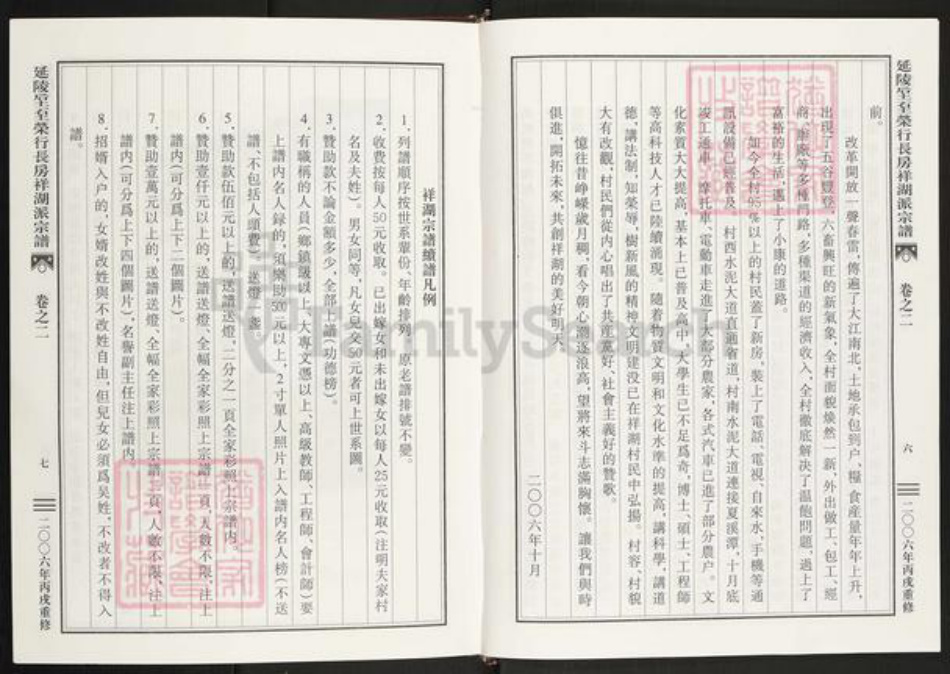 延陵堂至榮行長房祥湖派宗譜 卷之二 六 二〇〇六年丙戌重修
前。
改革開放一聲春雷，傳遍了大江南北，土地承包到户、糧食産量年年上升，
出現了五谷豐登、六畜興旺的新氣象，全村面貌焕然一新，外出做工、包工、經
商、辦廠等多種門路，多種渠道的經濟收入，全村徹底解决了温飽問題，過上了
富裕的生活，邁上了小康的道路。
如今全村95%以上的村民蓋了新房，裝上了電話、電視、自來水、手機等通
訊設備已經普及，村西水泥大道直通省道，村南水泥大道連接夏溪潭，十月底
竣工通車，摩托車、電動車走進了大部分農家，各式汽車已進了部分農户。文
化素質大大提高，基本上已普及高中，大學生已不足爲奇，博士、碩士、工程師
等高科技人才已陸續涌現。隨着物質文明和文化水準的提高，講科學，講道
德，講法制，知榮辱，樹新風的精神文明建設已在祥湖村民中弘揚。村容、村貌
大有改觀，村民們從内心唱出了共産黨好、社會主義好的贊歌。
憶往昔崢嶸歲月稠，看今朝心潮逐浪高，望將來斗志滿胸懷。讓我們與時
俱進，開拓未來，共創祥湖的美好明天。
二〇〇六年十月
祥湖宗譜續譜凡例
1、列譜順序按世系輩份、年齡排列，原老譜排號不變。
2、收費按每人50元收取。已出嫁女和未出嫁女以每人25元收取（注明夫家村
名及夫姓）。男女同等，凡女兒交50元者可上世系圖。
3、贊助款不論金額多少，全部上譜（功德榜）。
4、有職稱的人員（鄉鎮級以上，大專文憑以上、高級教師、工程師、會計師）要
上譜内名人録的，須樂助500元以上，2寸單人照片上入譜内名人榜（不送
譜、不包括人頭費），送燈一盞。
5、贊助款伍佰元以上的，送譜送燈，二分之一頁全家彩照上宗譜内。
6、贊助壹仟元以上的，送譜送燈、全幅全家彩照上宗譜一頁，人數不限，注上
譜内（可分爲上下二個圖片）。
7、贊助壹萬元以上的，送譜送燈、全幅全家彩照上宗譜二頁，人數不限，注上
譜内（可分爲上下四個圖片），名譽副主任注上譜内。
8、招婿入户的，女婿改姓與不改姓自由，但兒女必須爲吴姓，不改者不得入
譜。
延陵堂至榮行長房祥湖派宗譜 卷之二 七 二〇〇六年丙戌重修
FamilySearch